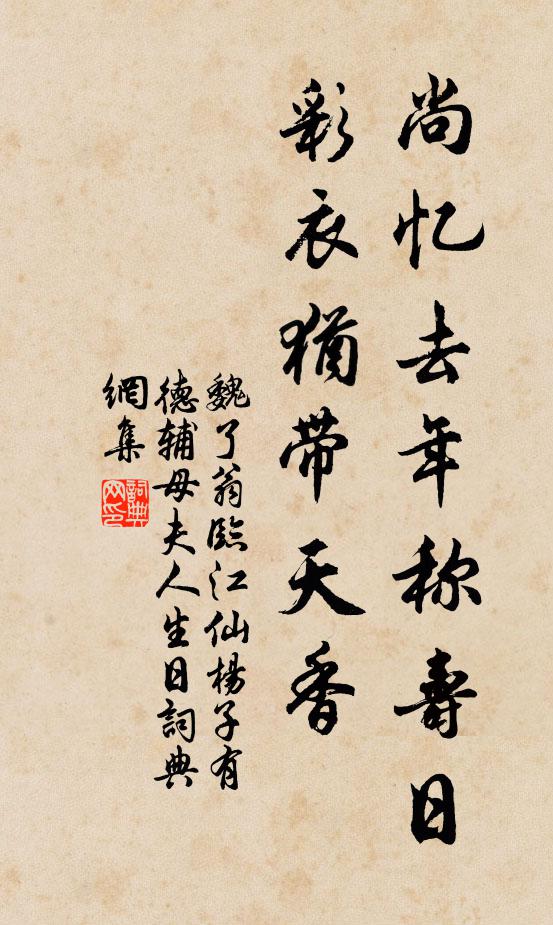 尚忆去年称壽日
彩衣猶带天香
魏了翁臨江仙楊子有
德辅母夫人生日詞典
網集
詞典
网印